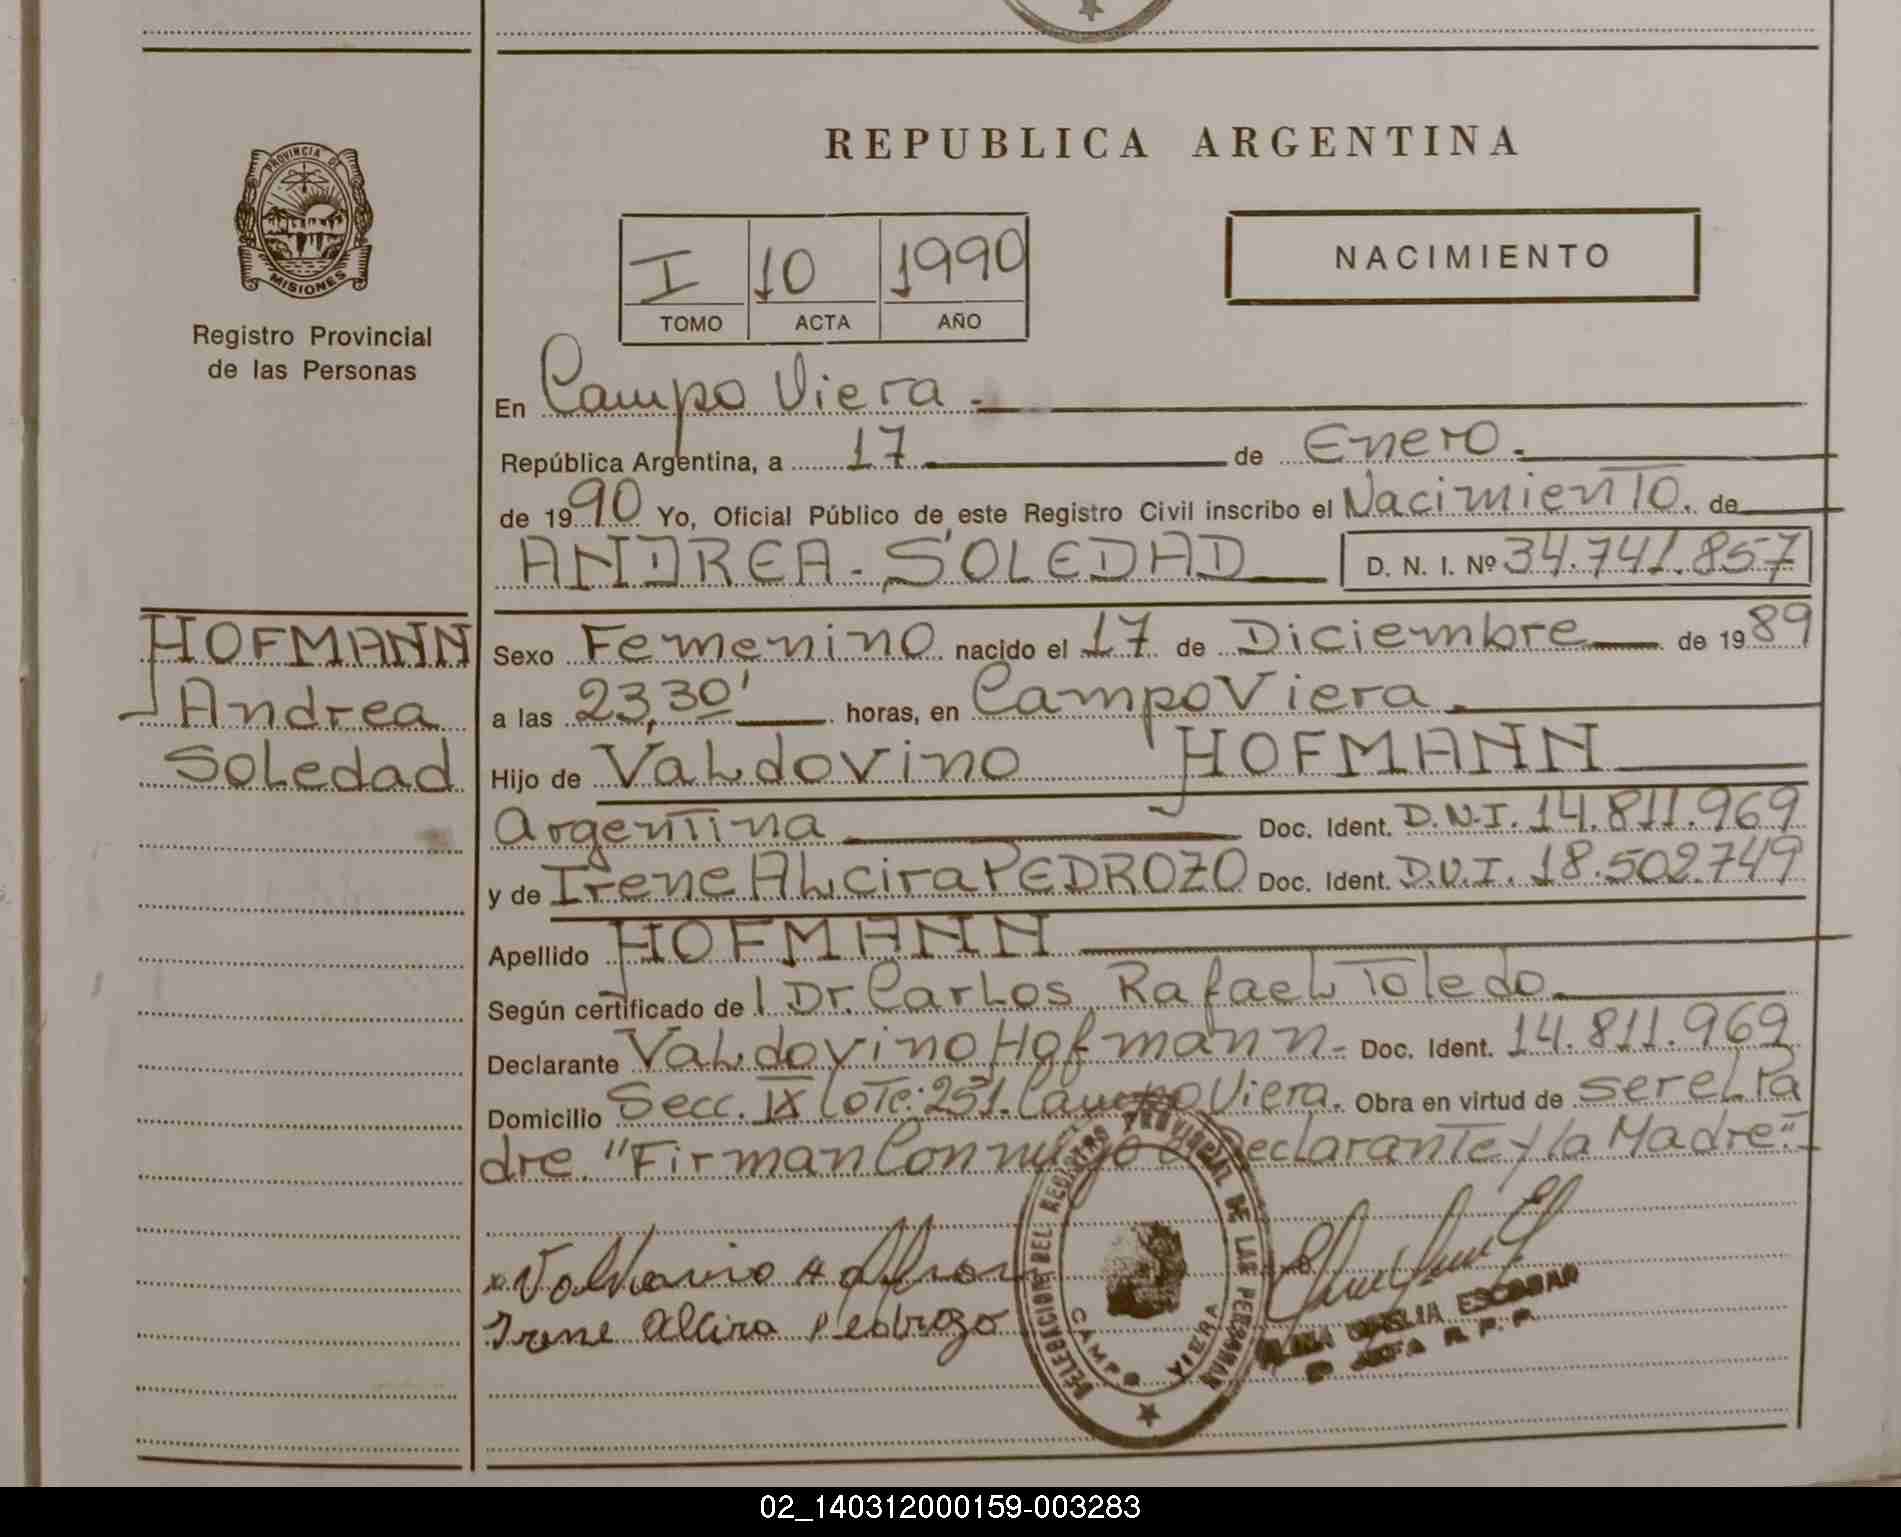 PROVINCIA DE
MISIONES
Registro Provincial
de las Personas
HOFMANN
Andrea
Soledad
REPUBLICA ARGENTINA
I 10 1990
TOMO ACTA AÑO
NACIMIENTO
En Campo Viera.
República Argentina, a 17 de Enero.
de 1990 Yo, Oficial Público de este Registro Civil inscribo el Nacimiento. de
ANDREA - SOLEDAD D. N. I. Nº 34.741.857
Sexo Femenino nacido el 17 de Diciembre de 1989
a las 23,30' horas, en Campo Viera.
Hijo de Valdovino HOFMANN
Argentina Doc. Ident. D.N.I. 14.811.969
y de Irene Alcira PEDROZO Doc. Ident. D.N.I. 18.502.749
Apellido HOFMANN
Según certificado de Dr. Carlos Rafael Toledo.
Declarante Valdovino Hofmann - Doc. Ident. 14.811.969
Domicilio Secc. IX Lote: 251. Campo Viera. Obra en virtud de ser el Pa
dre. "Firman Conmigo el Declarante y la Madre."-
Irene Alcira Pedrozo
DELEGACION DEL REGISTRO PROVINCIAL DE LAS PERSONAS
CAMPO VIERA
OFELIA ESCOBAR
JEFA R. P. P.
02_140312000159-003283